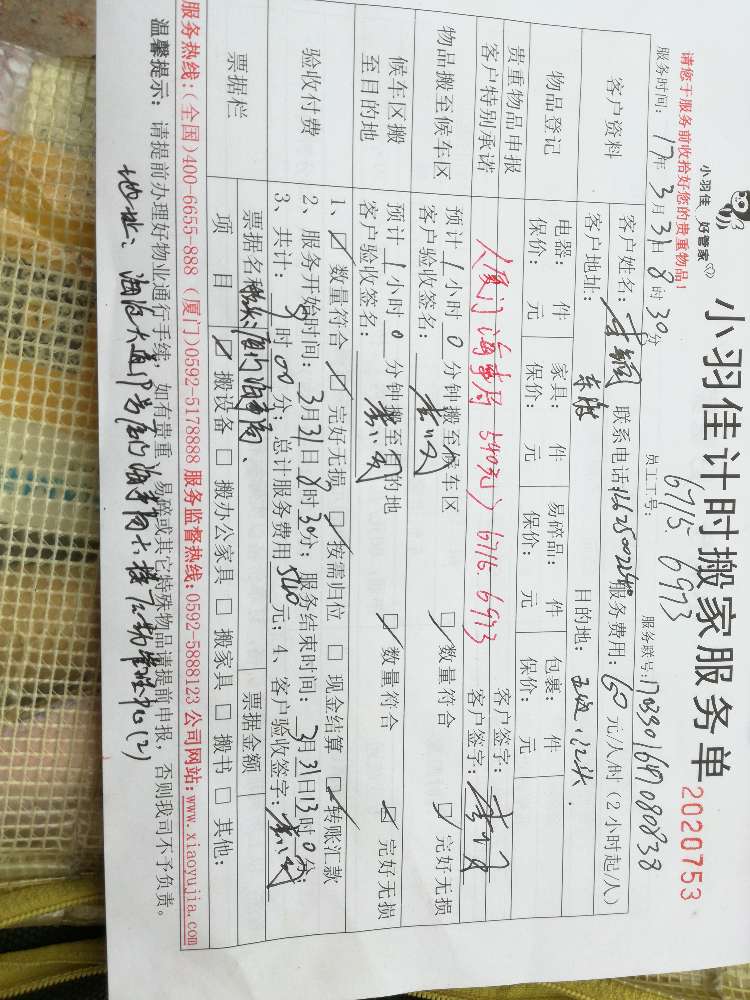 小羽佳 好管家
小羽佳计时搬家服务单 2020753
请您于服务前收拾好您的贵重物品！
员工工号： 6715. 6973
服务时间： 17年 3月 31日 8时 30分
服务联号：
客户资料
客户姓名： 联系电话： 服务费用： 60 元/人/时（2小时起/人）
客户地址： 东渡 目的地：
物品登记
电器： 件 家具： 件 易碎品： 件 包裹： 件
保价： 元 保价： 元 保价： 元 保价： 元
贵重物品申报 客户签字：
客户特别承诺 客户签字：
（厦门海事局 540元） 6715. 6973
物品搬至候车区
预计 1 小时 0 分钟搬至候车区 □数量符合 □完好无损
客户验收签名：
候车区搬至目的地
预计 1 小时 0 分钟搬至目的地 □数量符合 □完好无损
客户验收签名：
验收付费
1、□数量符合 □完好无损 □按需归位 □现金结算 □转账汇款
2、服务开始时间： 3月31日 8时30分；服务结束时间： 3月31日13时0分；
3、共计： 时00分；总计服务费用 540 元；4、客户验收签字：
票据栏
票据名称 票据金额
项目 □搬设备 □搬办公家具 □搬家具 □搬书 □其他：
服务热线：（全国）400-6655-888（厦门）0592-5178888 服务监督热线：0592-5888123 公司网站：www.xiaoyujia.com
温馨提示：请提前办理好物业通行手续，如有贵重、易碎或其它特殊物品请提前申报，否则我司不予负责。
地址： 海沧大道 厦门海事局